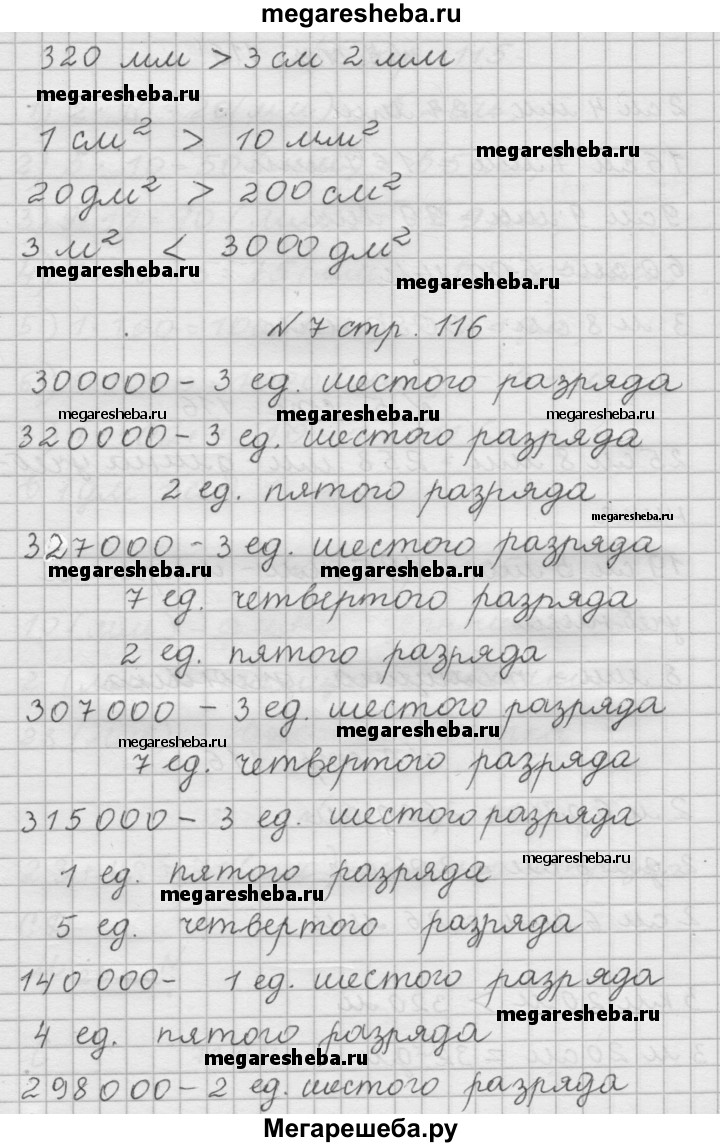 megaresheba.ru
320 мм > 3 см 2 мм
megaresheba.ru
1 см² > 10 мм²
megaresheba.ru
20 дм² > 200 см²
3 м² < 3000 дм²
megaresheba.ru
megaresheba.ru
№ 7 стр. 116
300000 - 3 ед. шестого разряда
megaresheba.ru megaresheba.ru megaresheba.ru
320000 - 3 ед. шестого разряда
2 ед. пятого разряда
megaresheba.ru
327000 - 3 ед. шестого разряда
megaresheba.ru megaresheba.ru
7 ед. четвертого разряда
2 ед. пятого разряда
307000 - 3 ед. шестого разряда
megaresheba.ru megaresheba.ru
7 ед. четвертого разряда
315000 - 3 ед. шестого разряда
megaresheba.ru
1 ед. пятого разряда
megaresheba.ru
5 ед. четвертого разряда
140 000 - 1 ед. шестого разряда
megaresheba.ru
4 ед. пятого разряда
megaresheba.ru
298000 - 2 ед. шестого разряда
Мегарешеба.ру